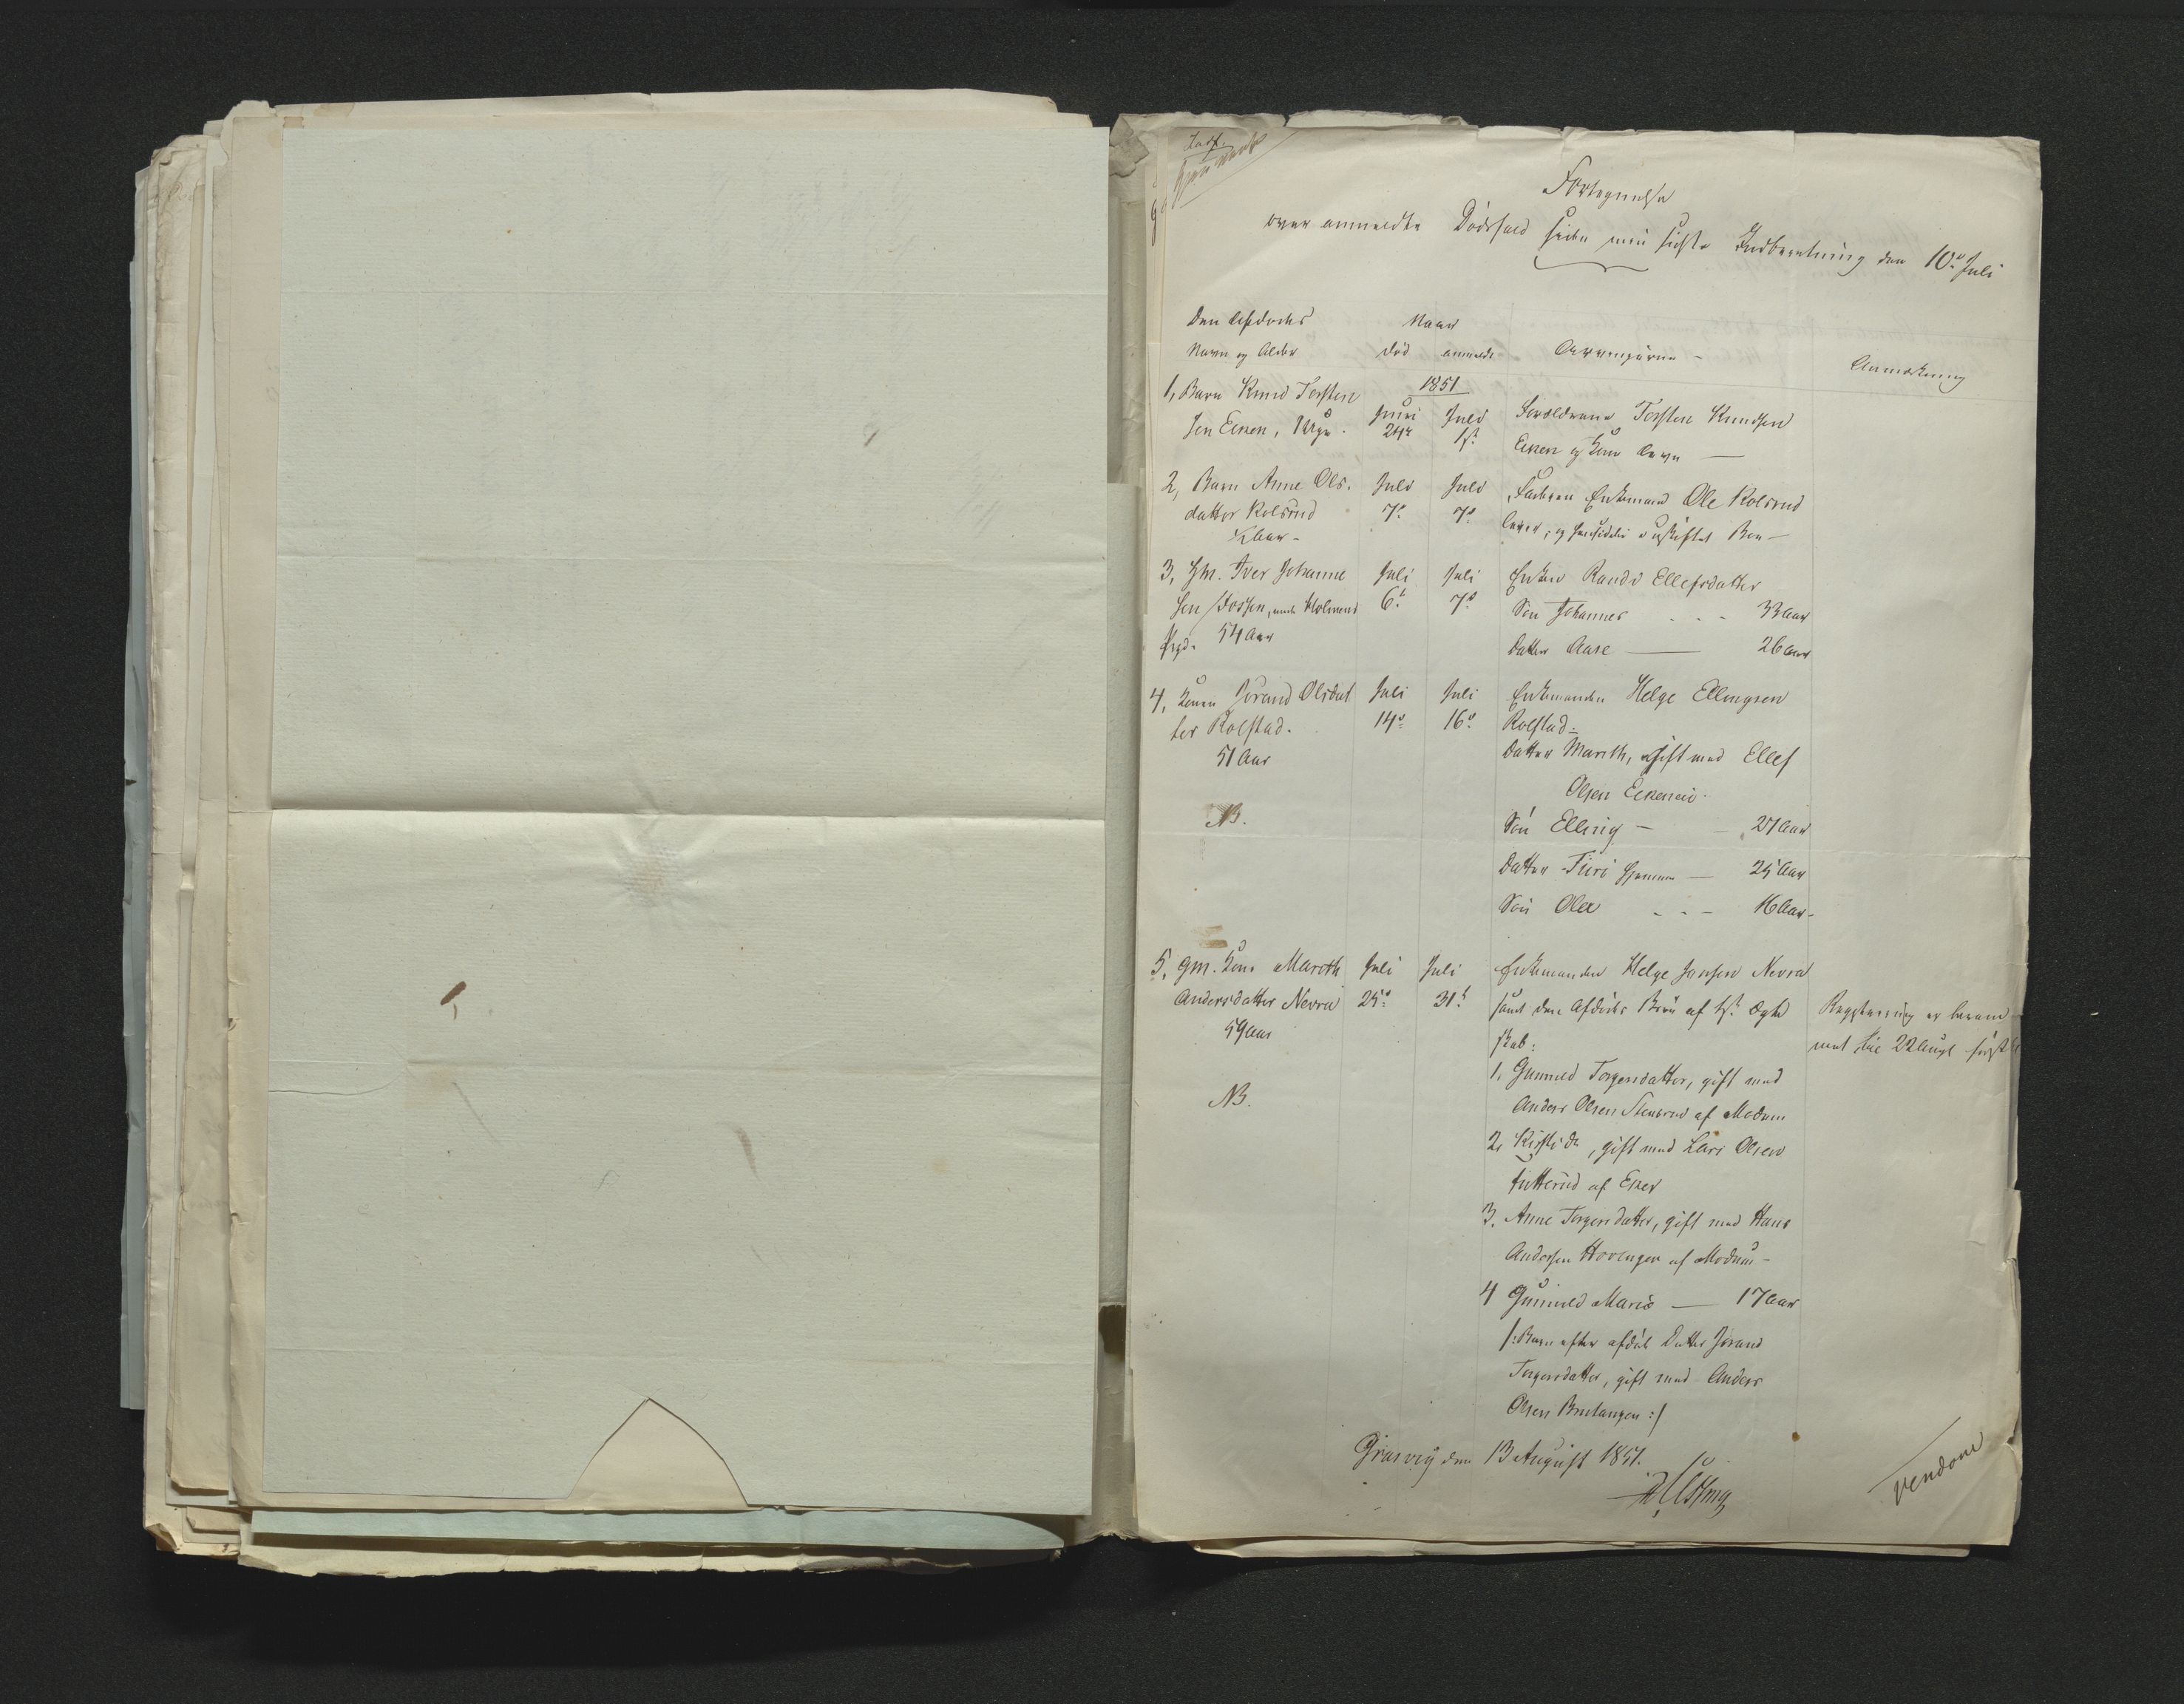 Fortegnelse
over anmeldte Dödsfald siden min sidste Indberetning den 10de Juli
Den Afdödes
Navn og Alder
Naar
död anmeldt
Arvingerne -
Anmærkning
1851
1, Barn Knud Torsten
sen Eknen, 1 Uge.
Juni
24de
Juli
1ste
Forældrene Torsten Knudsen
Eknen og Kone
2, Barn Anne Ols.
datter Kolsrud
½ Aar -
Juli
7de
Juli
7de
Faderen Enkemand Ole Kolsrud
3, Gm. Iver Johanne
sen
54 Aar
Juli
6te
Juli
7de
Enken Randi Ellefsdatter
Sön Johannes - - - 33 Aar
Datter Aase — 26 Aar
4, Konen Jörand Olsdat
ter Rolstad.
51 Aar
NB.
Juli
14de
Juli
16de
Enkemanden Helge Ellingsen
Rolstad -
Datter Marith, gift med Ellef
Olsen
Sön Elling - - 27 Aar
Datter Turi hjemme — 25 Aar
Sön Ole - - - 16 Aar -
5, Gm. Kone Marith
Andersdatter Nevra
59 Aar
NB.
Juli
25de
Juli
31te
Enkemanden Helge Jonsen Nevra
samt den Afdödes Börn af 1ste Ægte
skab:
1, Gunnild Torgersdatter, gift med
Anders Olsen Stensrud af Modum
2, Kirsti do, gift med Lars Olsen
af Eker
3. Anne Torgersdatter, gift med Hans
Andersen Hovengen af Modum -
4 Gunnild Marie — 17 Aar
/: Barn efter afdöde Datter Jörand
Torgersdatter, gift med Anders
Olsen Brutangen :/
Registrering er beram
met til 22 Augt förstk
den 13 August 1851.
vendom